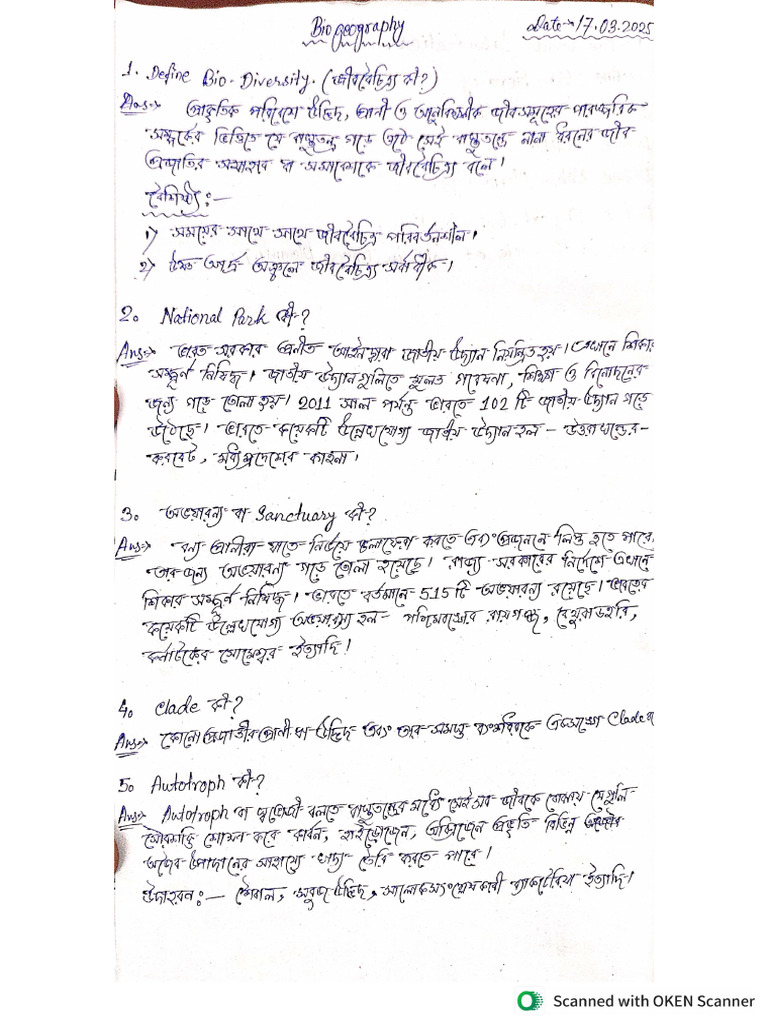 Bio geography
Date→17.03.2025
1. Define Bio-Diversity. (জীববৈচিত্র্য কী?)
Ans:→ প্রাকৃতিক পরিবেশে উদ্ভিদ, প্রাণী ও আনুবিক্ষনীক জীবসমূহের পারস্পরিক
সম্পর্কের ভিত্তিতে যে বাস্তুতন্ত্র গড়ে ওঠে সেই বাস্তুতন্ত্রে নানা ধরনের জীব
প্রজাতির সমাহার বা সমাবেশকে জীববৈচিত্র্য বলে।
বৈশিষ্ট্য:—
১) সময়ের সাথে সাথে জীববৈচিত্র্য পরিবর্তনশীল।
২) উষ্ণ আর্দ্র অঞ্চলে জীববৈচিত্র্য সর্বাধিক।
2. National Park কী?
Ans:→ ভারত সরকার প্রনীত আইনদ্বারা জাতীয় উদ্যান নিয়ন্ত্রিত হয়। এখানে শিকার
সম্পূর্ণ নিষিদ্ধ। জাতীয় উদ্যানগুলিতে মূলত গবেষনা, শিক্ষা ও বিনোদনের
জন্য গড়ে তোলা হয়। 2011 সাল পর্যন্ত ভারতে 102 টি জাতীয় উদ্যান গড়ে
উঠেছে। ভারতে কয়েকটি উল্লেখযোগ্য জাতীয় উদ্যান হল – উত্তরাখন্ডের–
করবেট, মধ্যপ্রদেশের কাহনা।
3. অভয়ারন্য বা Sanctuary কী?
Ans:→ বন্য প্রানীরা যাতে নির্ভয়ে চলাফেরা করতে এবং প্রজননে লিপ্ত হতে পারে,
তার জন্য অভয়ারন্য গড়ে তোলা হয়েছে। রাজ্য সরকারের নির্দেশে এখানে
শিকার সম্পূর্ণ নিষিদ্ধ। ভারতে বর্তমানে 515 টি অভয়ারন্য রয়েছে। ভারতের
কয়েকটি উল্লেখযোগ্য অভয়ারন্য হল – পশ্চিমবঙ্গের রায়গঞ্জ, বেথুয়াডহরি,
কর্নাটকের সোমেশ্বর ইত্যাদি।
4. Clade কী?
Ans:→ কোনো প্রজাতীর প্রানী বা উদ্ভিদ এবং তার সমস্ত বংশধরকে একসঙ্গে Clade
5. Autotroph কী?
Ans:→ Autotroph বা স্বভোজী বলতে বাস্তুতন্ত্রের মধ্যে সেই সব জীবকে বোঝায় যেগুলি
সৌরশক্তি শোষন করে কার্বন, হাইড্রোজেন, অক্সিজেন প্রভৃতি বিভিন্ন
অজৈব উপাদানের সাহায্যে খাদ্য তৈরি করতে পারে।
উদাহরন:— শৈবাল, সবুজ উদ্ভিদ, সালোকসংশ্লেষকারী ব্যাকটেরিয়া ইত্যাদি।
Scanned with OKEN Scanner